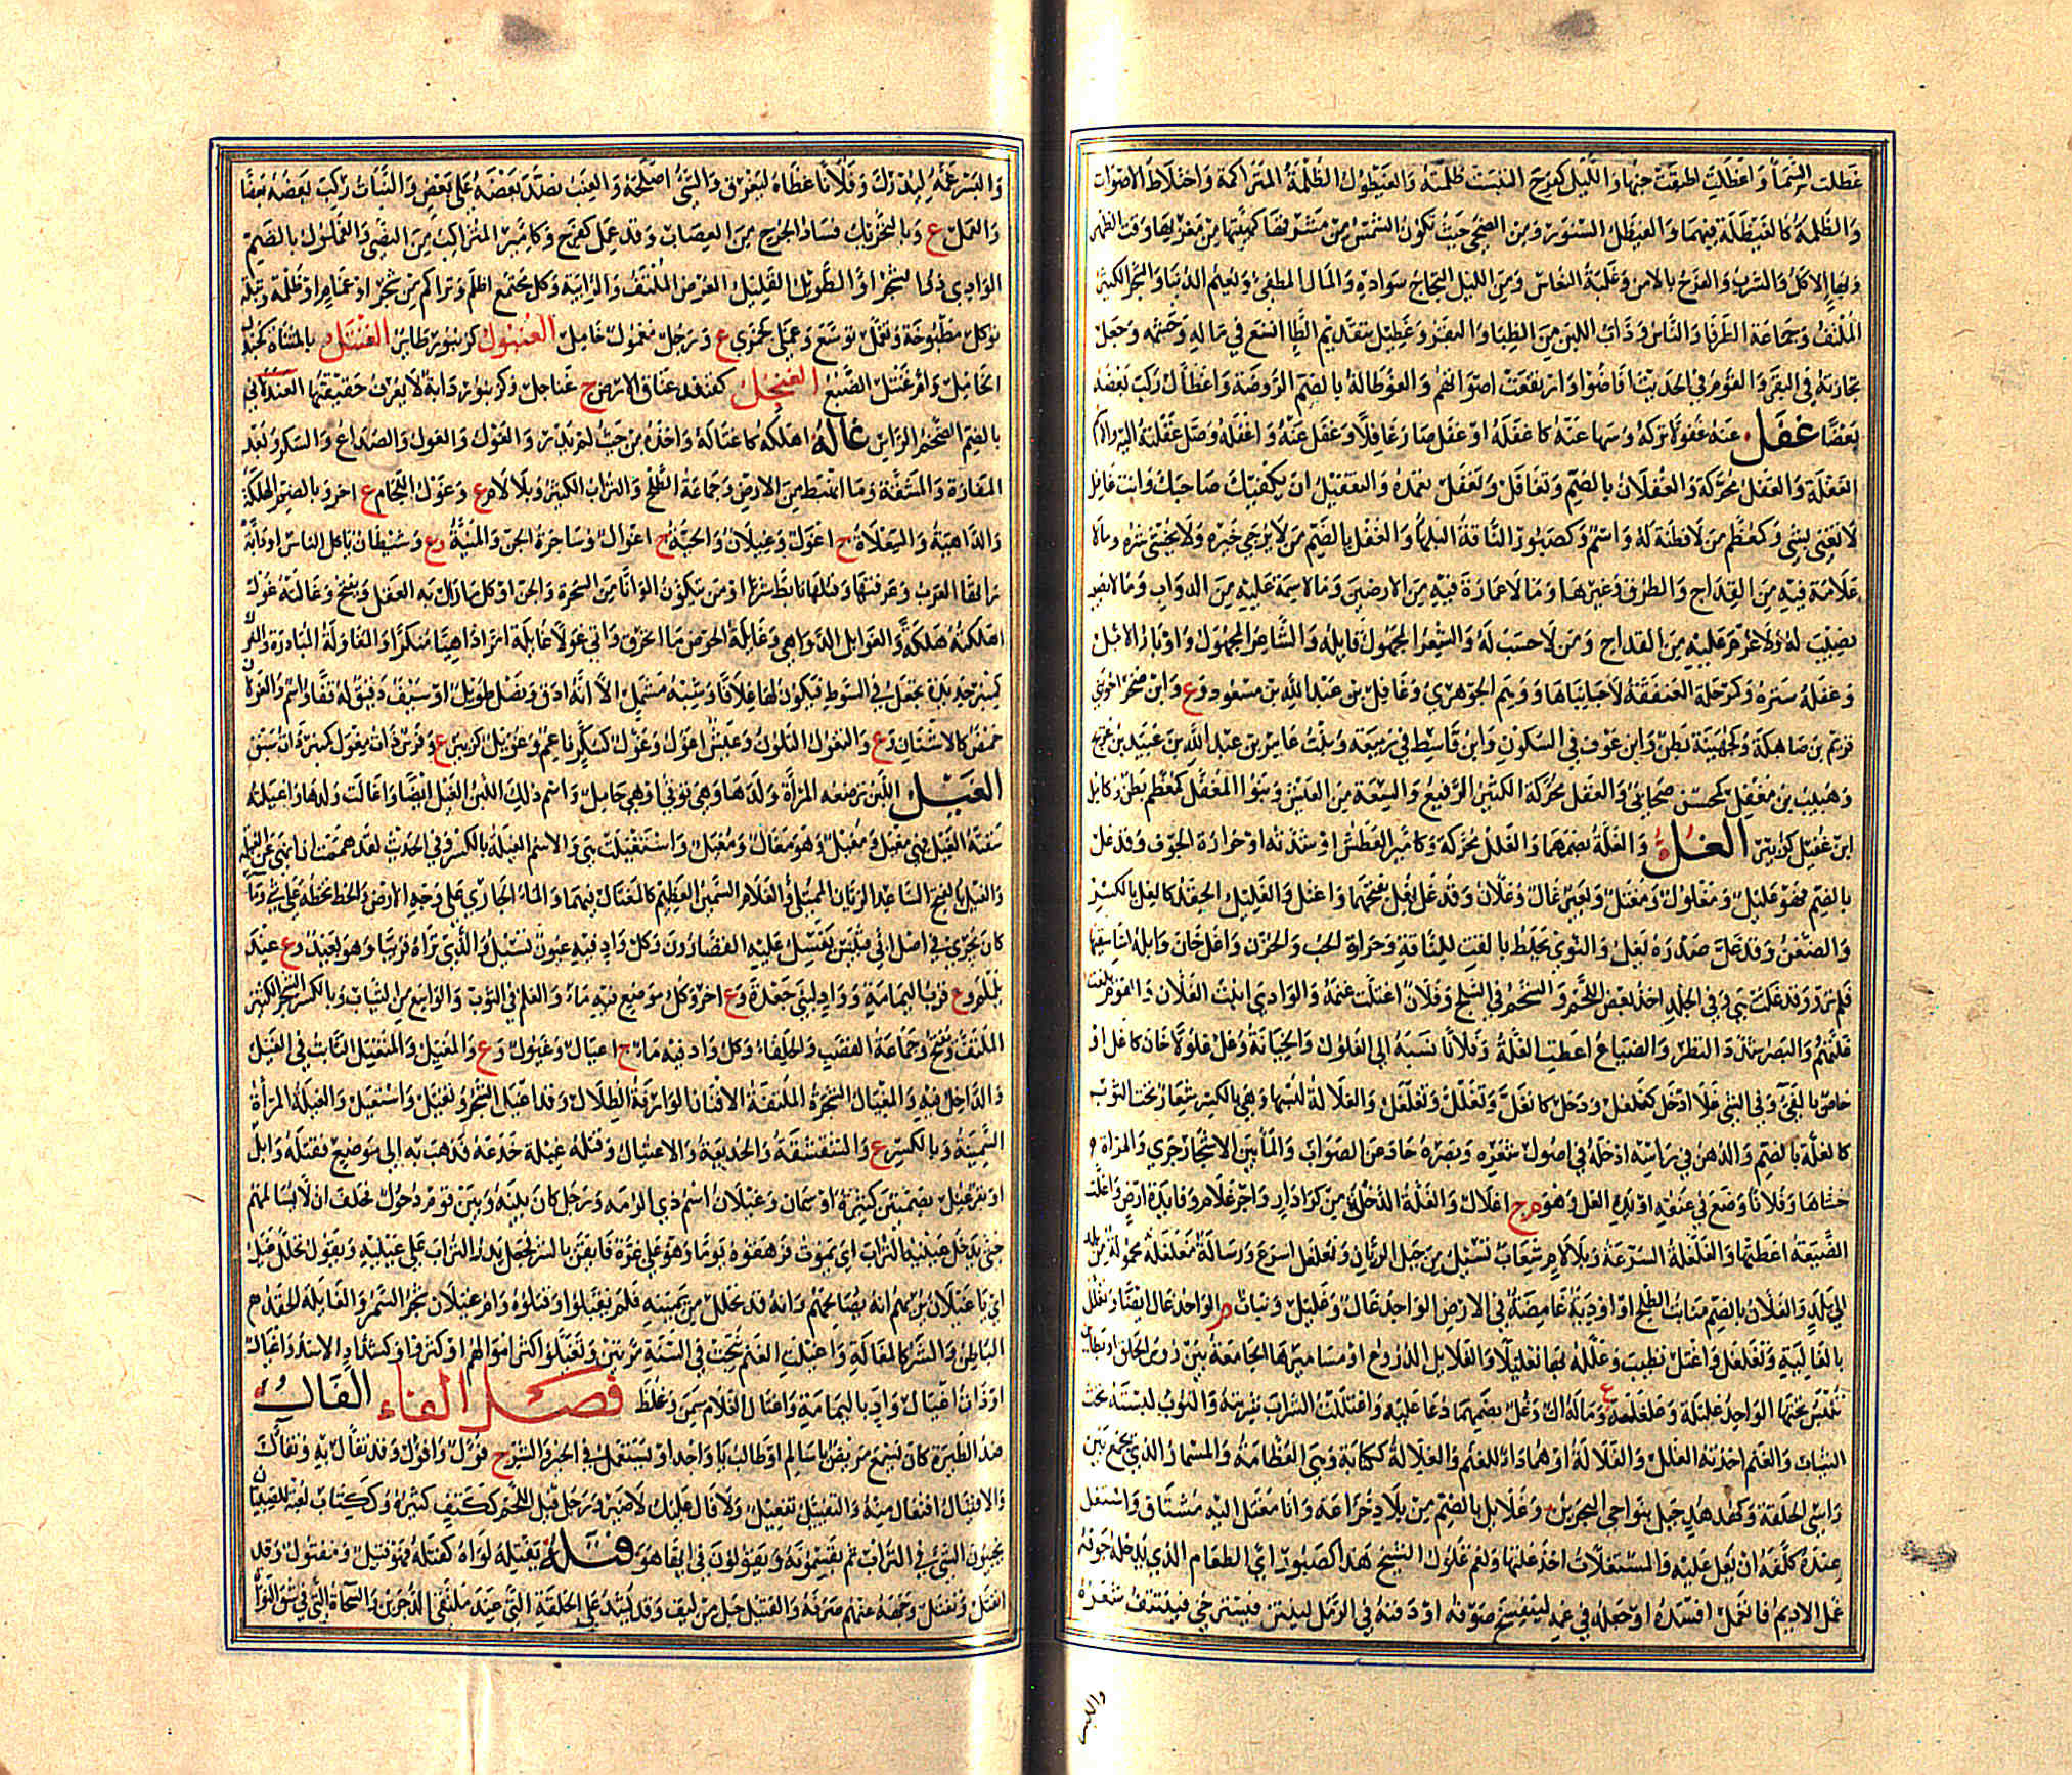 غطلت السماء واغطالت اطبقت دجنها والليل كفرح التبست ظلمته والغيطول الظلمة المتراكمة واختلاط الاصوات
والظلمة كالغيطلة فيهما والغيطل السنور ومن الضحى حيث تكون الشمس من مشرقها كهيئتها من مغربها وقت الظهر
وبهاء الاكل والشرب والفرح بالامن وغلبة النعاس ومن الليل التجاج سواده والمال المطغي ونعيم الدنيا والشجر الكثير
الملتف وجماعة الطرفاء والناس وذات اللبن من الظباء والبقر وغطيل بتقديم الطاء اتسع في ماله وحشمه وجعل
تجارته في البقر والقوم في الحديث افاضوا وارتفعت اصواتهم والغوطالة بالضم الروضة واغطال ركب بعضه
بعضا غفل عنه غفولا تركه وسها عنه كاغفله او غفل صار غافلا وغفل عنه واغفله وصل غفلته اليه والاسم
الغفلة والغفل محركة والغفلان بالضم وتغافل وتغفل تعمده والتغفيل ان يكفيك صاحبك وانت غافل
لا تعنى بشيء وكمعظم من لا فطنة له واسم وكصبور الناقة البلهاء والغفل بالضم من لا يرجى خيره ولا يخشى شره وما لا
علامة فيه من القداح والطرق وغيرها وما لا عمارة فيه من الارضين وما لا سمة عليه من الدواب وما لا نصيب
له ولا غرم عليه من القداح ومن لا حسب له والشعر المجهول قايله والشاعر المجهول واوبار الابل
وغفله ستره وكرحلة العنفقة لا جانباها ووهم الجوهري وغافل بن عبد الله بن مسعود وع وابن صخر اخو بني
قريم بن صاهلة وكجهينة بطن وابن عوف في السكون وابن قاسط في ربيعة وبنت عامر بن عبد الله بن عبيد بن عويج
وهبيب بن مغفل كمحسن صحابي والغفل محركة الكثير الرفيع والسعة من العيش وبنوا المغفل كمعظم بطن وكامل
ابن غفيل كزبير الغل والغلة بضمهما والغلل محركة وكامير العطش او شدته او حرارة الجوف وقد غل
بالضم فهو غليل ومغلول ومغتل وبعير غال وغلان وقد غل يغل بفتحهما واغتل والغليل الحقد كالغل بالكسر
والضغن وقد غل صدره يغل والنوى يخلط بالقت للناقة وحرارة الحب والحزن واغل خان وابله اساء سقيها
فلم ترو وقد غلت هي وفي الجلد اخذ بعض اللحم والشحم في السلخ وفلان اغتلت غنمه والوادي انبت الغلان والقوم بلغت
غلتهم والبصر شدد النظر والضياع اعطت الغلة وفلانا نسبه الى الغلول والخيانة وغل غلولا خان كاغل او
خاص بالفيء وفي الشيء غلا ادخل كغلغل ودخل كانغل وتغلل وتغلغل والغلالة لبسها وهي بالكسر شعار تحت الثوب
كالغلة بالضم والدهن في راسه ادخله في اصول شعره وبصره حاد عن الصواب والماء بين الاشجار جرى والمراة
حشاها وفلانا وضع في عنقه او يده الغل وهو م ج اغلال والغلة الدخل من كراء دار واجر غلام وفايدة ارض واغلت
الضيعة اعطتها والغلغلة السرعة وبلا لام شعاب تسيل من جبل الريان وتغلغل اسرع ورسالة مغلغلة محمولة من بلد
الى بلد والغلان بالضم منابت الطلح او اودية غامضة في الارض الواحد غال وغليل ونبات م الواحد غال ايضا وتغلل
بالغالية وتغلغل واغتل تطيب وغلله بها تغليلا والغلايل الدروع او مساميرها الجامعة بين رؤس الحلق او بطاين
تلبس تحتها الواحد غليلة وغلغلة ع وماله ال وغل بضمهما دعاء عليه واغتللت الشراب شربته والثوب لبسته تحت
الثياب والغنم اخذته الغلل والغلالة او هما داء للغنم والغلالة ككتابة وهي العظامة والمسمار الذي يجمع بين
راسي الحلقة وكهدهد جبل بنواحي البحرين وغلايل بالضم من بلاد خزاعة وانا مغتل اليه مشتاق واستغل
عبده كلفه ان يغل عليه والمستغلات اخذ غلتها ونعم غلول الشيخ هذا كصبور اي الطعام الذي يدخله جوفه
غمل الاديم فانغمل افسده او جعله في غمة لينفسخ صوفه او دفنه في الرمل ليلين فيسترخي فينتتف شعره
والبسر غمه ليدرك وفلانا غطاه ليعرق والشيء اصلحه والعنب نضد بعضه على بعض والنبات ركب بعضه بعضا
والغمل ع وبالتحريك فساد الجرح من العصاب وقد غمل كفرح وكامير المتراكب من النصي والغملول بالضم
الوادي ذو الشجر او الطويل القليل العرض الملتف والرابية وكل مجتمع اظلم وتراكم من شجر او غمام او ظلمة وبقلة
توكل مطبوخة وتغمل توسع وغملى كجمزى ع ورجل مغمول خامل الغنبول كزنبور طاير الغنتل بالمثناة كجندل
الخامل وام غنتل الضبع الغنجل كقنفذ عناق الارض ج غناجل وكزنبور دابة لا يعرف حقيقتها الغندلاني
بالضم الضخم الراس غاله اهلكه كاغتاله واخذه من حيث لم يدر والغول والغول والصداع والسكر وبعد
المفازة والمشقة وما انهبط من الارض وجماعة الطلح والتراب الكثير وبلا لام ع وغول الرجام ع اخر وبالضم الهلكة
والداهية والسعلاة ج اغوال وغيلان والحية ج اغوال وساحرة الجن والمنية وع وشيطان ياكل الناس او دابة
راتها العرب وعرفتها وقتلها تابط شرا او من يتلون الوانا من السحرة والجن او كل ما زال به العقل ويفتح وغالته غول
اهلكته هلكة والغوايل الدواهي وغايلة الحوض ما انخرق واتي غولا غايلة امرا داهيا منكرا والمغاولة المبادرة والمغول
كمنبر حديدة تجعل في السوط فيكون لها غلافا وشبه مشمل الا انه ادق ونصل طويل او سيف دقيق له قفا واسم والغولان
حمض كالاشنان وع والتغول التلون وعيش اغول وغول كسكر ناعم وغويل كزبير ع وفرس ذات مغول كمنبر ذات سبق
الغيل اللبن ترضعه المراة ولدها وهي توتى او هي حامل واسم ذلك اللبن الغيل ايضا واغالت ولدها واغيلته
سقته الغيل فهي مغيل ومغيل وهو مغال ومغيل واستغيلت هي والاسم الغيلة بالكسر وفي الحديث لقد هممت ان انهى عن الغيلة
والغيل بالفتح الساعد الريان الممتلئ والغلام السمين العظيم كالمغتال فيهما والماء الجاري على وجه الارض والخط تخطه على شيء وماء
كان يجري في اصل ابي قبيس يغسل عليه القصارون وكل واد فيه عيون تسيل والذي تراه قريبا وهو بعيد وع عند
يلملم وع قرب اليمامة وواد لبني جعدة وع اخر وكل موضع فيه ماء والعلم في الثوب والواسع من الثياب وبالكسر الشجر الكثير
الملتف ويفتح وجماعة القصب والحلفاء وكل واد فيه ماء ج اغيال وغيول وع والمغيل والمتغيل الثابت في الغيل
والداخل فيه والمغيال الشجرة الملتفة الافنان الوارفة الظلال وقد اغيل الشجر وتغيل واستغيل والغيلة المراة
السمينة وبالكسر ع والشقشقة والخديعة والاغتيال وقتله غيلة خدعه فذهب به الى موضع فقتله وابل
او بقر غيل بضمتين كثيرة او سمان وغيلان اسم ذي الرمة ورجل كان بينه وبين قوم ذحول فحلف ان لا يسالمهم
حتى يدخل عيليه التراب اي يموت فرهقوه يوما وهو على غرة فايقن بالشر فجعل يذر التراب على عينيه ويقول تحلل غيل
اي يا غيلان يريهم انه يصالحهم وانه قد تحلل من يمينه فلم يقبلوا وقتلوه وام غيلان شجر السمر والغايلة الحقد
الباطن والشر كالمغالة واغيلت الغنم نتجت في السنة مرتين وتغيلوا اكثر اموالهم او كثروا وكشداد الاسد واغيال
او ذات اغيال واد باليمامة واغتال الغلام سمن وغلظ فصل الفاء الفال
ضد الطيرة كان يسمع مريض يا سالم او طالب يا واجد او يستعمل في الخير والشر ج فؤول وافؤل وقد تفاءل به وتفال
والافتيال افتعال منه والتفييل تفعيل ولا فال عليك لا ضير ورجل فيل اللحم ككتف كثيره وككتاب لعبة للصبيان
يخبون الشيء في التراب ثم يقسمونه ويقولون في ايها هو فتله يفتله لواه كفتله فهو فتيل ومفتول وقد
انفتل وتفتل ووجهه عنهم صرفه والفتيل حبل من ليف وقد يشد على الحلقة التي عند ملتقى الدجرين والسحاة التي في شق النواة
واللبس